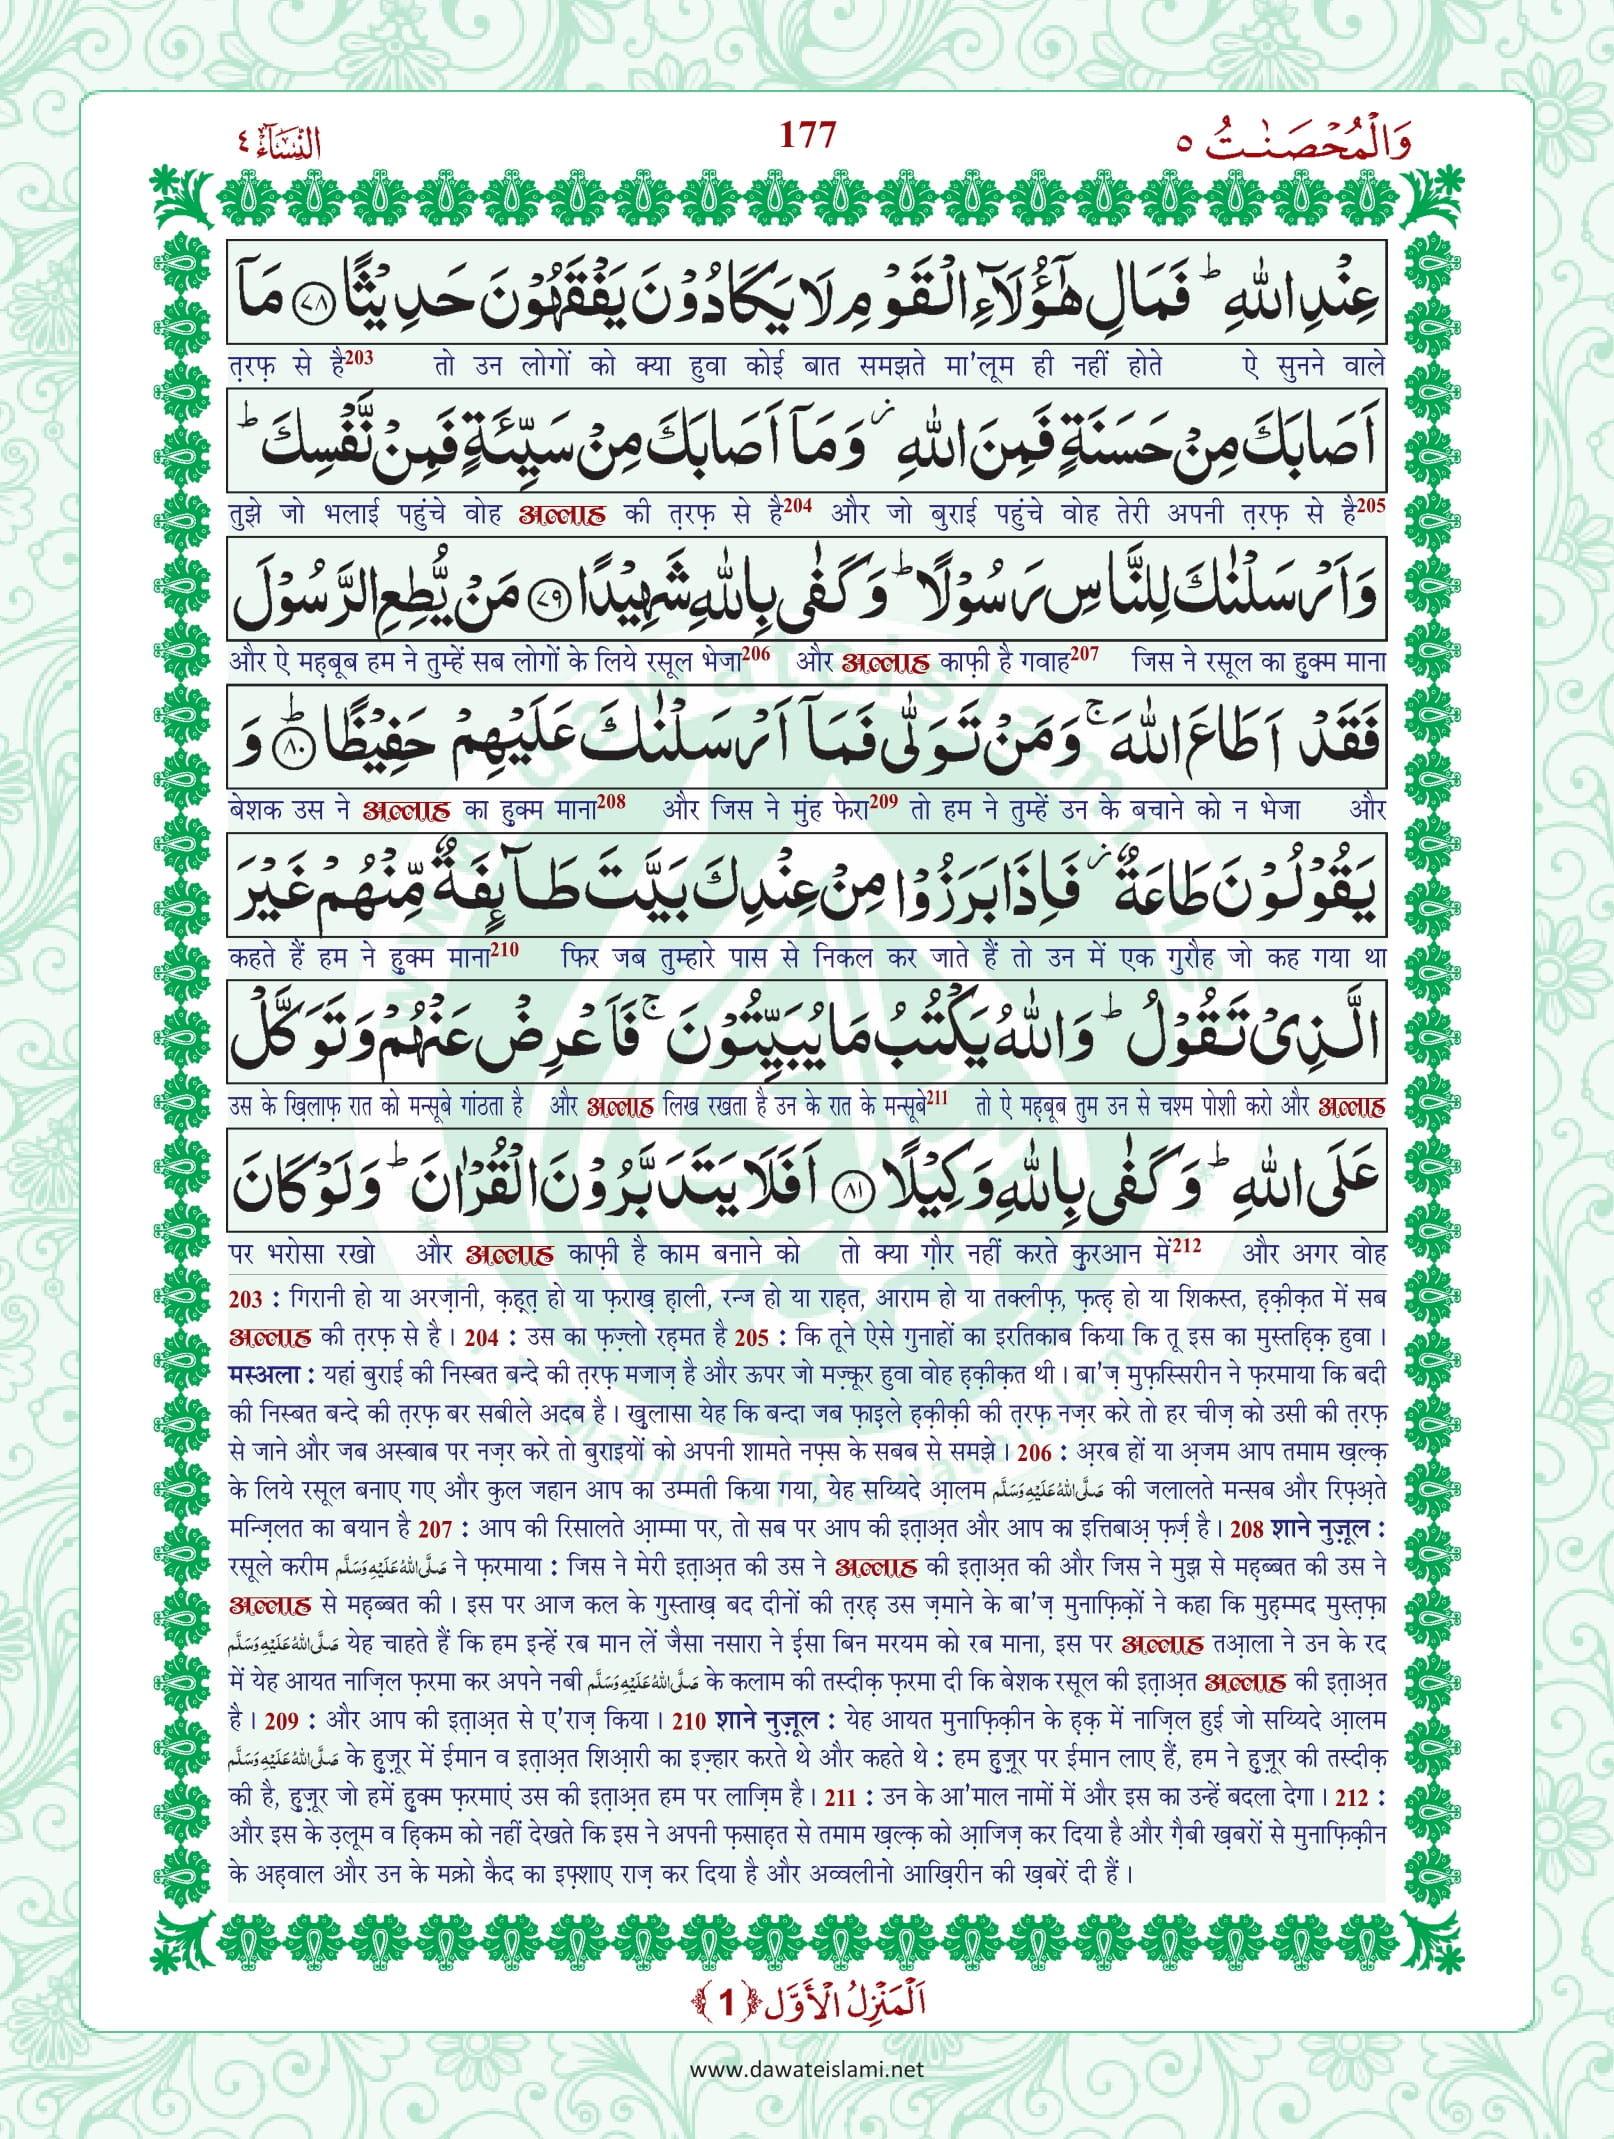 وَالْمُحْصَنٰتُ ٥ 177 النِّسَآء ٤
عِنْدِ اللّٰهِ ؕ فَمَالِ هٰۤؤُلَآءِ الْقَوْمِ لَا یَكَادُوْنَ یَفْقَهُوْنَ حَدِیْثًا ﴿۷۸﴾ مَاۤ
त़रफ़ से है203 तो उन लोगों को क्या हुवा कोई बात समझते मा'लूम ही नहीं होते ऐ सुनने वाले
اَصَابَكَ مِنْ حَسَنَةٍ فَمِنَ اللّٰهِ ؗ وَ مَاۤ اَصَابَكَ مِنْ سَیِّئَةٍ فَمِنْ نَّفْسِكَ ؕ
तुझे जो भलाई पहुंचे वोह अल्लाह की त़रफ़ से है204 और जो बुराई पहुंचे वोह तेरी अपनी त़रफ़ से है205
وَ اَرْسَلْنٰكَ لِلنَّاسِ رَسُوْلًا ؕ وَ كَفٰى بِاللّٰهِ شَهِیْدًا ﴿۷۹﴾ مَنْ یُّطِعِ الرَّسُوْلَ
और ऐ मह़बूब हम ने तुम्हें सब लोगों के लिये रसूल भेजा206 और अल्लाह काफ़ी है गवाह207 जिस ने रसूल का हुक्म माना
فَقَدْ اَطَاعَ اللّٰهَ ۚ وَ مَنْ تَوَلّٰى فَمَاۤ اَرْسَلْنٰكَ عَلَیْهِمْ حَفِیْظًا ﴿ؕ۸۰﴾ وَ
बेशक उस ने अल्लाह का हुक्म माना208 और जिस ने मुंह फेरा209 तो हम ने तुम्हें उन के बचाने को न भेजा और
یَقُوْلُوْنَ طَاعَةٌ ؗ فَاِذَا بَرَزُوْا مِنْ عِنْدِكَ بَیَّتَ طَآىٕفَةٌ مِّنْهُمْ غَیْرَ
कहते हैं हम ने हुक्म माना210 फिर जब तुम्हारे पास से निकल कर जाते हैं तो उन में एक गुरौह जो कह गया था
الَّذِیْ تَقُوْلُ ؕ وَ اللّٰهُ یَكْتُبُ مَا یُبَیِّتُوْنَ ۚ فَاَعْرِضْ عَنْهُمْ وَ تَوَكَّلْ
उस के ख़िलाफ़ रात को मन्सूबे गांठता है और अल्लाह लिख रखता है उन के रात के मन्सूबे211 तो ऐ मह़बूब तुम उन से चश्म पोशी करो और अल्लाह
عَلَى اللّٰهِ ؕ وَ كَفٰى بِاللّٰهِ وَكِیْلًا ﴿۸۱﴾ اَفَلَا یَتَدَبَّرُوْنَ الْقُرْاٰنَ ؕ وَ لَوْ كَانَ
पर भरोसा रखो और अल्लाह काफ़ी है काम बनाने को तो क्या ग़ौर नहीं करते क़ुरआन में212 और अगर वोह
203 : गिरानी हो या अरज़ानी, क़ह़त़ हो या फ़राख़ ह़ाली, रन्ज हो या राह़त, आराम हो या तक्लीफ़, फ़त्ह़ हो या शिकस्त, ह़क़ीक़त में सब
अल्लाह की त़रफ़ से है । 204 : उस का फ़ज़्लो रह़मत है 205 : कि तूने ऐसे गुनाहों का इरतिकाब किया कि तू इस का मुस्तह़िक़ हुवा ।
मस्अला : यहां बुराई की निस्बत बन्दे की त़रफ़ मजाज़ है और ऊपर जो मज़्कूर हुवा वोह ह़क़ीक़त थी । बा'ज़ मुफ़स्सिरीन ने फ़रमाया कि बदी
की निस्बत बन्दे की त़रफ़ बर सबीले अदब है । ख़ुलासा येह कि बन्दा जब फ़ाइले ह़क़ीक़ी की त़रफ़ नज़र करे तो हर चीज़ को उसी की त़रफ़
से जाने और जब अस्बाब पर नज़र करे तो बुराइयों को अपनी शामते नफ़्स के सबब से समझे । 206 : अ़रब हों या अ़जम आप तमाम ख़ल्क़
के लिये रसूल बनाए गए और कुल जहान आप का उम्मती किया गया, येह सय्यिदे आ़लम صَلَّى اللّٰهُ عَلَيْهِ وَسَلَّم की जलालते मन्सब और रिफ़्अ़ते
मन्ज़िलत का बयान है 207 : आप की रिसालते आ़म्मा पर, तो सब पर आप की इत़ाअ़त और आप का इत्तिबाअ़ फ़र्ज़ है । 208 शाने नुज़ूल :
रसूले करीम صَلَّى اللّٰهُ عَلَيْهِ وَسَلَّم ने फ़रमाया : जिस ने मेरी इत़ाअ़त की उस ने अल्लाह की इत़ाअ़त की और जिस ने मुझ से मह़ब्बत की उस ने
अल्लाह से मह़ब्बत की । इस पर आज कल के गुस्ताख़ बद दीनों की त़रह़ उस ज़माने के बा'ज़ मुनाफ़िक़ों ने कहा कि मुह़म्मद मुस्त़फ़ा
صَلَّى اللّٰهُ عَلَيْهِ وَسَلَّم येह चाहते हैं कि हम इन्हें रब मान लें जैसा नसारा ने ई़सा बिन मरयम को रब माना, इस पर अल्लाह तआ़ला ने उन के रद
में येह आयत नाज़िल फ़रमा कर अपने नबी صَلَّى اللّٰهُ عَلَيْهِ وَسَلَّم के कलाम की तस्दीक़ फ़रमा दी कि बेशक रसूल की इत़ाअ़त अल्लाह की इत़ाअ़त
है । 209 : और आप की इत़ाअ़त से ए'राज़ किया । 210 शाने नुज़ूल : येह आयत मुनाफ़िक़ीन के ह़क़ में नाज़िल हुई जो सय्यिदे आ़लम
صَلَّى اللّٰهُ عَلَيْهِ وَسَلَّم के हुज़ूर में ईमान व इत़ाअ़त शिआ़री का इज़्हार करते थे और कहते थे : हम हुज़ूर पर ईमान लाए हैं, हम ने हुज़ूर की तस्दीक़
की है, हुज़ूर जो हमें हुक्म फ़रमाएं उस की इत़ाअ़त हम पर लाज़िम है । 211 : उन के आ'माल नामों में और इस का उन्हें बदला देगा । 212 :
और इस के उ़लूम व ह़िकम को नहीं देखते कि इस ने अपनी फ़साह़त से तमाम ख़ल्क़ को आ़जिज़ कर दिया है और ग़ैबी ख़बरों से मुनाफ़िक़ीन
के अह़वाल और उन के मक्रो कैद का इफ़्शाए राज़ कर दिया है और अव्वलीनो आख़िरीन की ख़बरें दी हैं ।
اَلْمَنْزِلُ الْاَوَّل ﴿1﴾
www.dawateislami.net